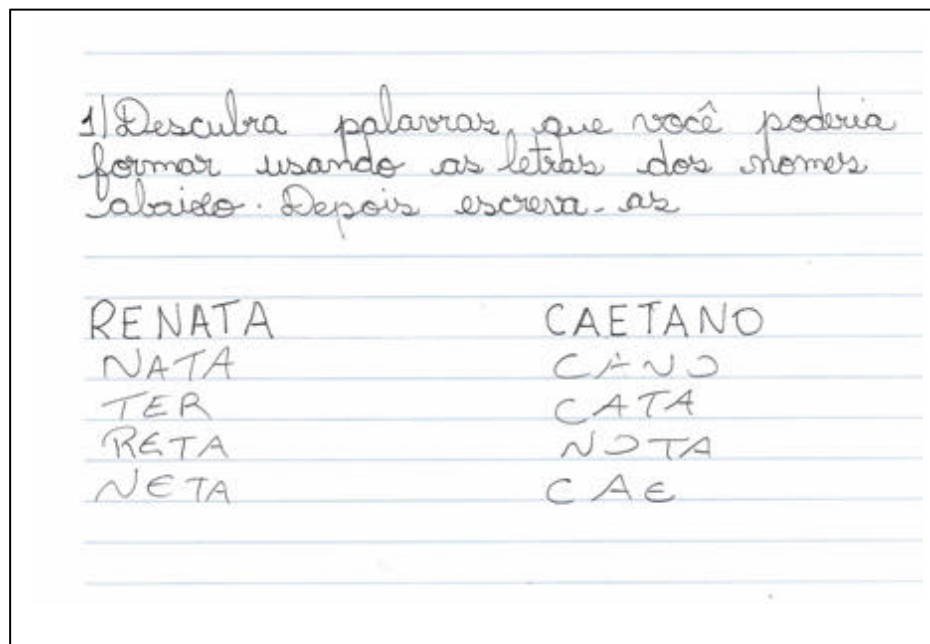 1) Descubra palavras, que você poderia
formar usando as letras dos nomes
abaixo. Depois escreva-as
RENATA CAETANO
NATA CANO
TER CATA
RETA NOTA
NETA CAE